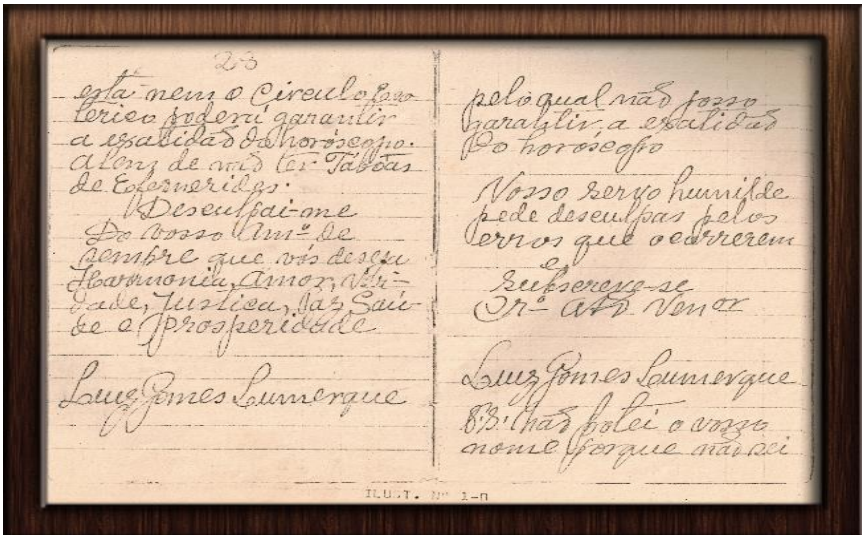 23
está nem o Circulo Eso
térico poderá garantir
a exatidão do horóscopo.
alem de não ter Táboas
de Efemerides.
Desculpai-me
Do vosso Amº de
sempre que vós deseja
Harmonia, Amor, Ver-
dade, Justica, Paz Saú-
de e Prosperidade
Luiz Gomes Lumerque
pelo qual não posso
garantir a exatidão
Do horóscopo
Vosso servo humilde
pede desculpas pelos
erros que ocorrerem
e
subscreve-se
Crº Atº Venor
Luiz Gomes Lumerque
não botei o vosso
nome porque não sei
ILUST. Nº 1-